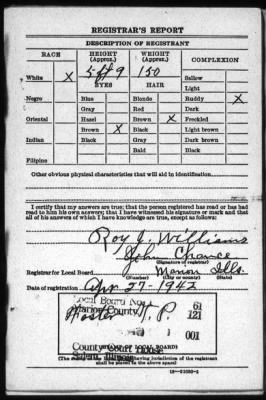 REGISTRAR'S REPORT
DESCRIPTION OF REGISTRANT
RACE HEIGHT (Approx.) WEIGHT (Approx.) COMPLEXION
5 ft 9 150
White X Sallow
EYES HAIR Light
Negro Blue Blonde Ruddy X
Gray Red Dark
Oriental Hazel Brown X Freckled
Brown X Black Light brown
Indian Black Gray Dark brown
Bald Black
Filipino
Other obvious physical characteristics that will aid in identification
I certify that my answers are true; that the person registered has read or has had
read to him his own answers; that I have witnessed his signature or mark and that
all of his answers of which I have knowledge are true, except as follows:
Roy J. Williams
John Chance
(Signature of registrar)
Registrar for Local Board Marion Ills.
(Number) (City or county) (State)
Date of registration Apr. 27-1942
Local Board No.
Marion County 61
121
001
County Court House
Salem, Illinois
(STAMP OF LOCAL BOARD)
(The stamp of the Local Board having jurisdiction of the registrant
shall be placed in the above space)